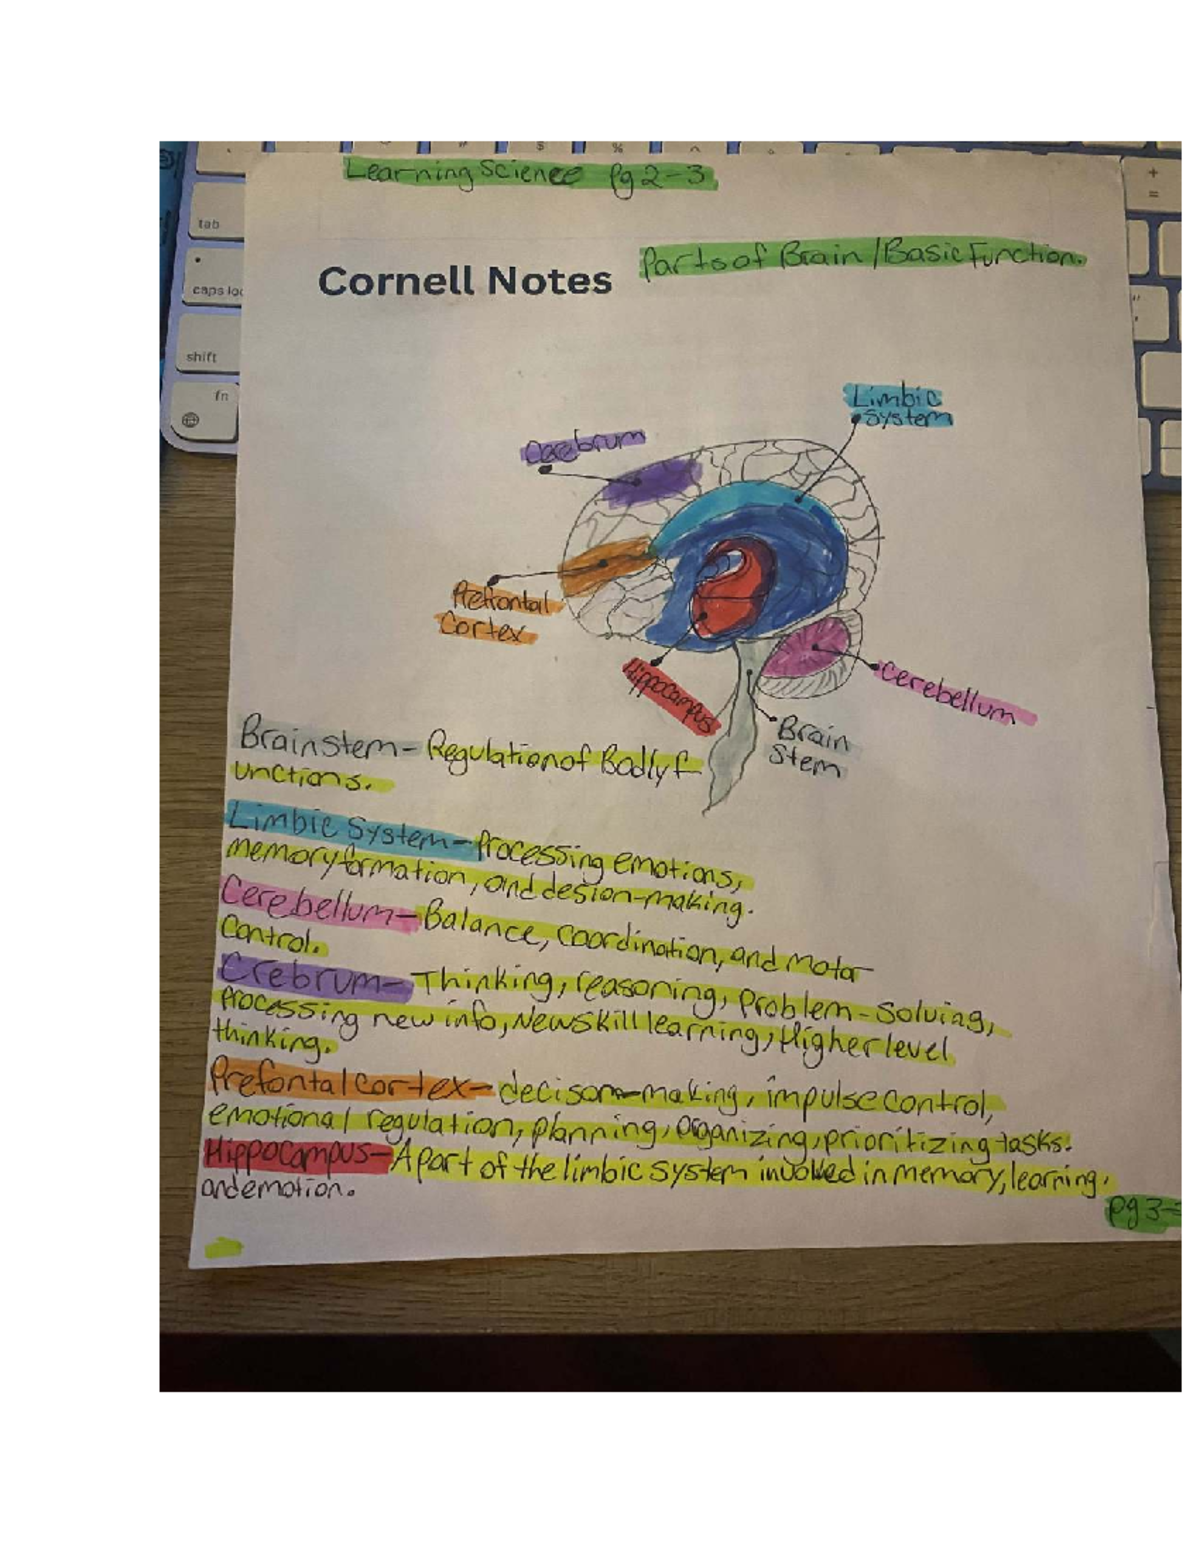 Learning Science pg 2-3
Parts of Brain/Basic Function.
Cornell Notes
tab
caps loc
shift
fn
Limbic
System
Cerebrum
Prefrontal
Cortex
Hippocampus
Cerebellum
Brain
Stem
Brainstem- Regulation of Bodly f
unctions.
Limbic System- Processing emotions,
memory formation, and desion-making.
Cerebellum- Balance, coordination, and Motor
Control.
Crebrum- Thinking, reasoning, Problem-Solving,
Processing new info, New skill learning, Higher level
thinking.
Prefontal cortex- decison-making, impulse control,
emotional regulation, planning, organizing, prioritizing tasks.
Hippocampus- A part of the limbic system involved in memory, learning,
and emotion.
pg 3-